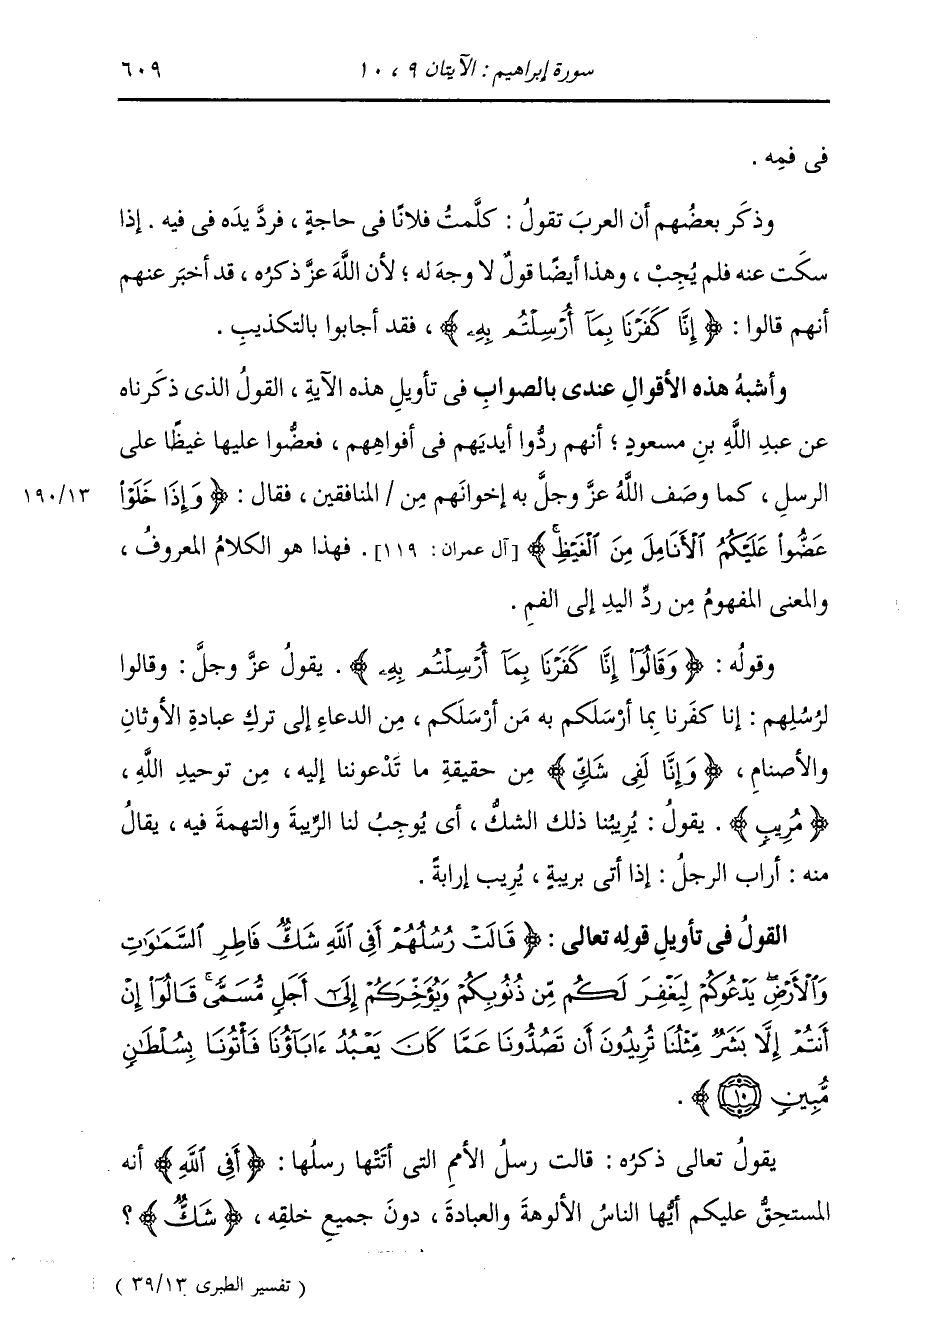 سورة إبراهيم : الآيتان ٩ ، ١٠ ٦٠٩
فى فمِه .
وذكَر بعضُهم أن العربَ تقولُ : كلَّمتُ فلانًا فى حاجةٍ ، فردَّ يدَه فى فيه . إذا
سكَت عنه فلم يُجِبْ ، وهذا أيضًا قولٌ لا وجهَ له ؛ لأن اللَّهَ عزَّ ذكرُه ، قد أخبَر عنهم
أنهم قالوا : ﴿ إِنَّا كَفَرْنَا بِمَآ أُرْسِلْتُم بِهِۦ ﴾ ، فقد أجابوا بالتكذيبِ .
وأشبهُ هذه الأقوالِ عندى بالصوابِ فى تأويلِ هذه الآيةِ ، القولُ الذى ذكَرناه
عن عبدِ اللَّهِ بنِ مسعودٍ ؛ أنهم ردُّوا أيديَهم فى أفواهِهم ، فعضُّوا عليها غيظًا على
الرسلِ ، كما وصَف اللَّهُ عزَّ وجلَّ به إخوانَهم مِن / المنافقين ، فقال : ﴿ وَإِذَا خَلَوْا۟ ١٩٠/١٣
عَضُّوا۟ عَلَيْكُمُ ٱلْأَنَامِلَ مِنَ ٱلْغَيْظِۚ ﴾ [آل عمران : ١١٩] . فهذا هو الكلامُ المعروفُ ،
والمعنى المفهومُ مِن ردِّ اليدِ إلى الفمِ .
وقولُه : ﴿ وَقَالُوٓا۟ إِنَّا كَفَرْنَا بِمَآ أُرْسِلْتُم بِهِۦ ﴾ . يقولُ عزَّ وجلَّ : وقالوا
لرُسُلِهم : إنا كفَرنا بما أرْسَلكم به مَن أرْسَلَكم ، مِن الدعاءِ إلى تركِ عبادةِ الأوثانِ
والأصنامِ ، ﴿ وَإِنَّا لَفِى شَكٍّ ﴾ مِن حقيقةِ ما تَدْعوننا إليه ، مِن توحيدِ اللَّهِ ،
﴿ مُرِيبٍ ﴾ . يقولُ : يُرِيبُنا ذلك الشكُّ ، أى يُوجِبُ لنا الرِّيبةَ والتهمةَ فيه ، يقالُ
منه : أراب الرجلُ : إذا أتى بريبةٍ ، يُرِيب إرابةً .
القولُ فى تأويلِ قوله تعالى : ﴿ قَالَتْ رُسُلُهُمْ أَفِى ٱللَّهِ شَكٌّ فَاطِرِ ٱلسَّمَـٰوَٰتِ
وَٱلْأَرْضِۖ يَدْعُوكُمْ لِيَغْفِرَ لَكُم مِّن ذُنُوبِكُمْ وَيُؤَخِّرَكُمْ إِلَىٰٓ أَجَلٍ مُّسَمًّىۚ قَالُوٓا۟ إِنْ
أَنتُمْ إِلَّا بَشَرٌ مِّثْلُنَا تُرِيدُونَ أَن تَصُدُّونَا عَمَّا كَانَ يَعْبُدُ ءَابَآؤُنَا فَأْتُونَا بِسُلْطَـٰنٍ
مُّبِينٍ ۝١٠ ﴾ .
يقولُ تعالى ذكرُه : قالت رسلُ الأممِ التى أتَتْها رسلُها : ﴿ أَفِى ٱللَّهِ ﴾ أنه
المستحِقُّ عليكم أيُّها الناسُ الألوهةَ والعبادةَ ، دونَ جميعِ خلقِه ، ﴿ شَكٌّ ﴾ ؟
( تفسير الطبرى ٣٩/١٣ )